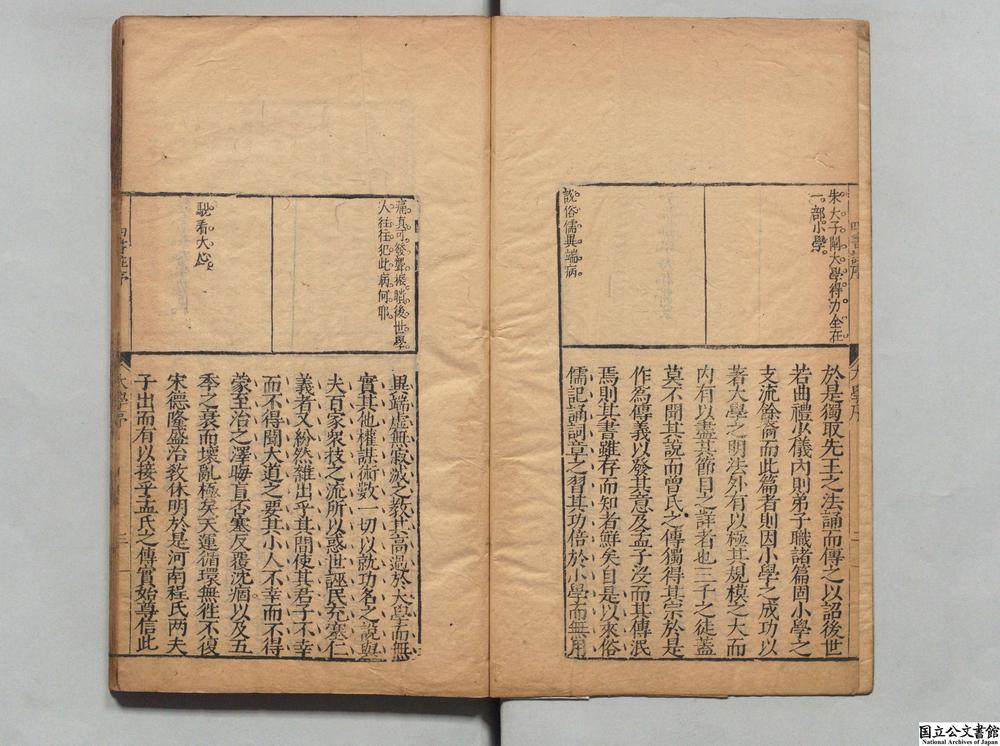 朱夫子闡大學得力全在
一部小學。
說俗儒異端病
大學序 二
於是獨取先王之法誦而傳之以詔後世
若曲禮少儀內則弟子職諸篇固小學之
支流餘裔而此篇者則因小學之成功以
著大學之明法外有以極其規模之大而
內有以盡其節目之詳者也三千之徒蓋
莫不聞其說而曾氏之傳獨得其宗於是
作爲傳義以發其意及孟子沒而其傳泯
焉則其書雖存而知者鮮矣自是以來俗
儒記誦詞章之習其功倍於小學而無用
痛真可發聾振瞶後世學
人往往犯此病何耶
看大
異端虛無寂滅之教其高過於大學而無
實其他權謀術數一切以就功名之說與
夫百家衆技之流所以惑世誣民充塞仁
義者又紛然雜出乎其間使其君子不幸
而不得聞大道之要其小人不幸而不得
蒙至治之澤晦盲否塞反覆沈痼以及五
季之衰而壞亂極矣天運循環無徃不復
宋德隆盛治教休明於是河南程氏两夫
子出而有以接乎孟氏之傳實始尊信此
大學序
国立公文書館
National Archives of Japan